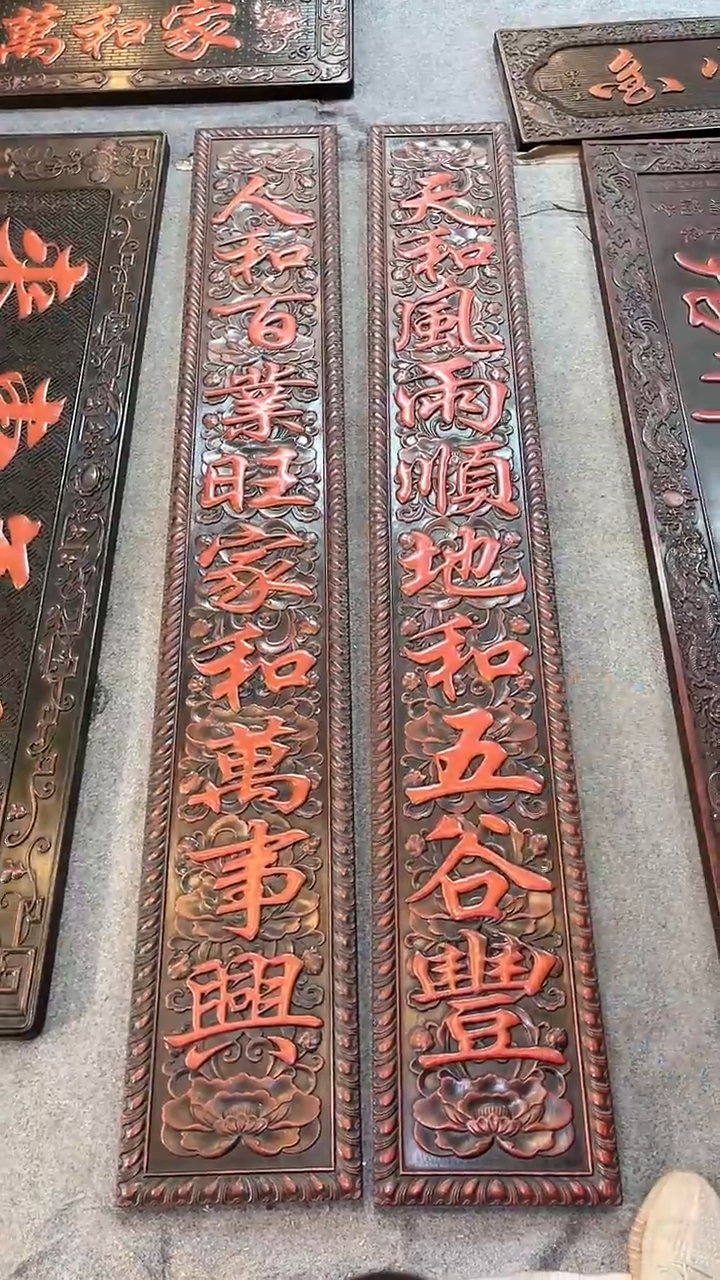 天和風雨順地和五谷豐
人和百業旺家和萬事興
萬和家